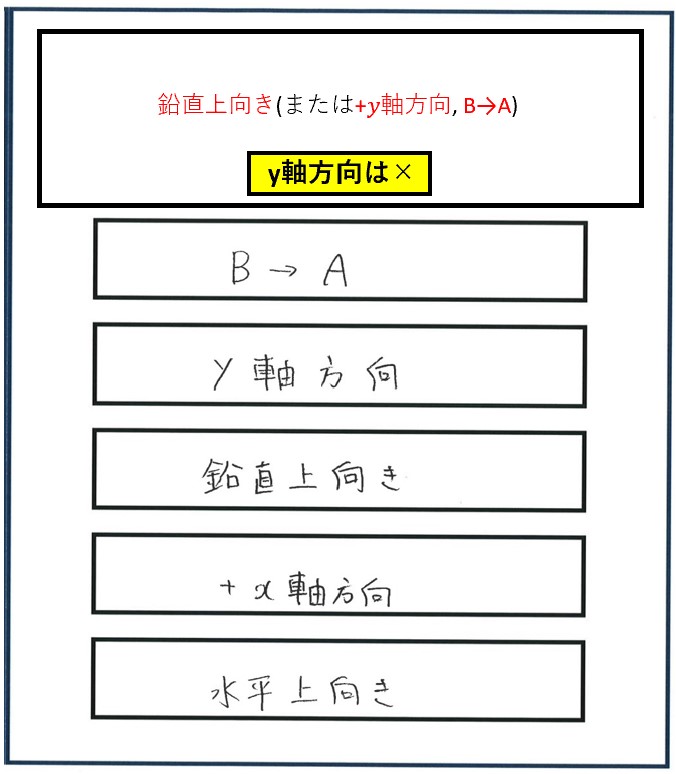 鉛直上向き(または+y軸方向, B→A)
y軸方向は×
B → A
y 軸 方 向
鉛直上向き
+ x 軸方向
水平上向き